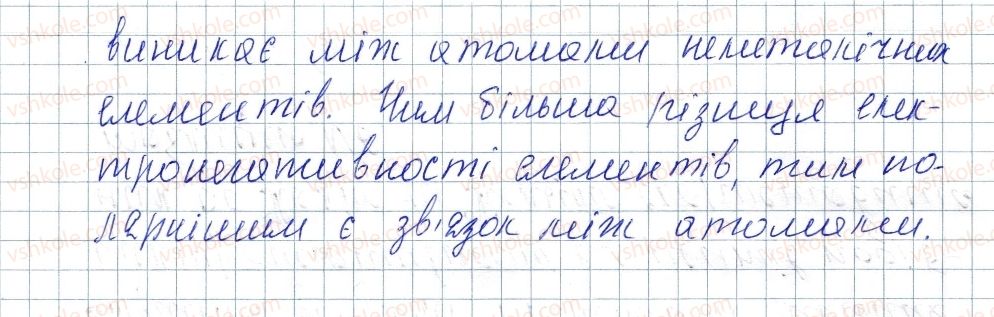 виникає між атомами неметалічних
елементів. Чим більша різниця елек-
тронегативності елементів, тим по-
лярнішим є зв'язок між атомами.